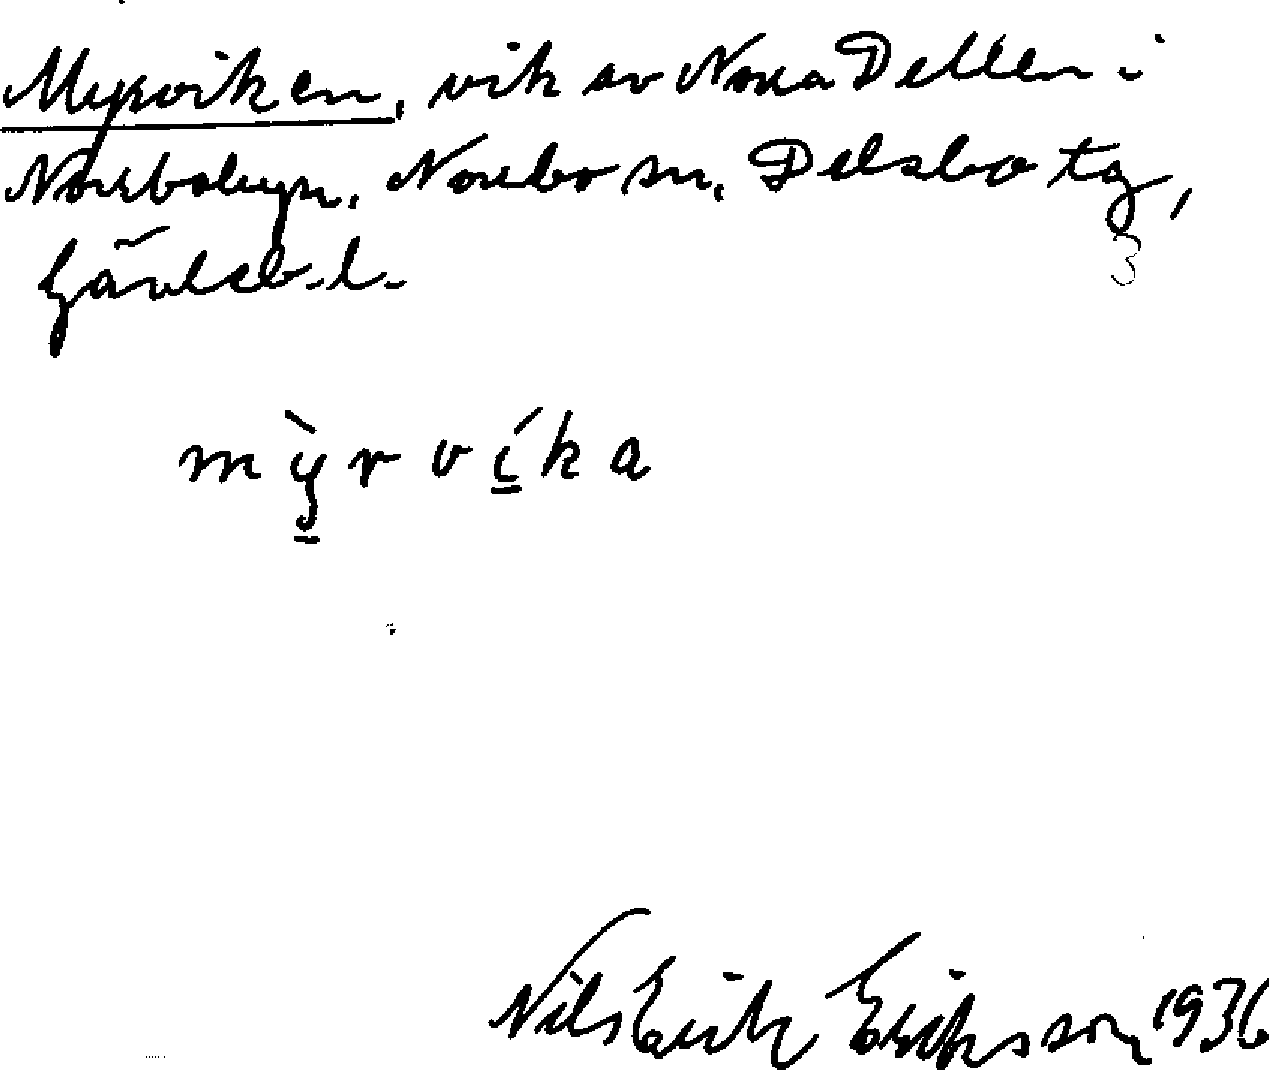 Myrviken, vik av Norra Dellen i
Norrbobyn, Norrbo sn, Delsbo tg,
Gävleb. l.
3
mỳ̲rví̲ka
Nils Erik Eriksson 1936